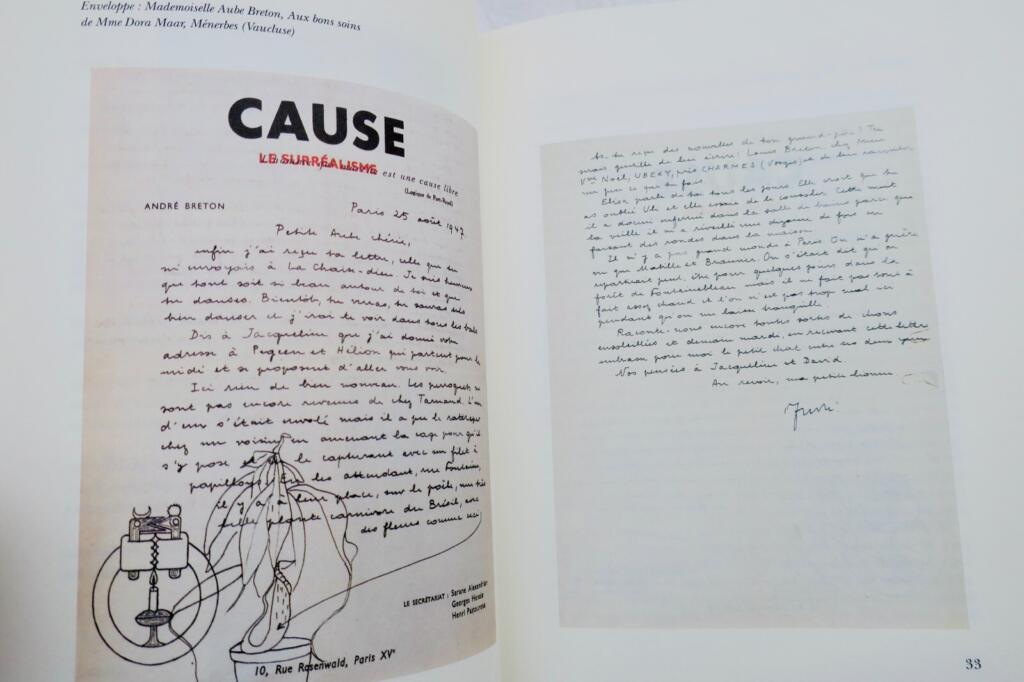 Enveloppe : Mademoiselle Aube Breton, Aux bons soins
de Mme Dora Maar, Ménerbes (Vaucluse)
CAUSE
LE SURRÉALISME
est une cause libre
(Logique de Port-Royal)
ANDRÉ BRETON
Paris 25 août 1947
Petite Aube chérie,
enfin j'ai reçu ta lettre, celle que tu
m'envoyais à La Chaise-Dieu. Je suis heureux
que tout soit si beau autour de toi et que
tu danses. Bientôt, tu verras, tu sauras très
bien danser et j'irai te voir dans tous les bals
Dis à Jacqueline que j'ai donné votre
adresse à Pegeen et Hélion qui partent pour le
midi et se proposent d'aller vous voir.
Ici rien de bien nouveau. Les perroquets ne
sont pas encore revenus de chez Tarnaud. L'un
d'eux s'était envolé mais il a pu le rattraper
chez un voisin en amenant la cage pour qu'il
s'y pose et en le capturant avec un filet à
papillons. En les attendant, rue Fontaine,
il y a à leur place, sur le poêle, une très
belle plante carnivore du Brésil, avec
des fleurs comme ceci
LE SECRÉTARIAT : Sarane Alexandrian
Georges Henein
Henri Pastoureau
10, Rue Rosenwald, Paris XVe
As-tu reçu des nouvelles de ton grand-père ? Tu
serais gentille de leur écrire : Louis Breton chez
Vve Noël, UBEXY, près CHARMES (Vosges) et de leur raconter
un peu ce que tu fais.
Elisa parle de toi tous les jours. Elle croit que tu
as oublié Uli et elle essaie de le consoler. Cette nuit
il a dormi enfermé dans la salle de bains parce que
la veille il m'a réveillé une dizaine de fois en
faisant des rondes dans la maison.
Il n'y a pas grand monde à Paris. On n'a guère
vu que Matille et Brauner. On s'était dit qu'on
repartirait peut-être pour quelques jours dans la
forêt de Fontainebleau mais il ne fait pas tout à
fait assez chaud et l'on n'est pas trop mal ici
pendant qu'on me laisse tranquille.
Raconte-nous encore toutes sortes de choses
ensoleillées et demain mardi, en recevant cette lettre
embrasse pour moi le petit chat entre ses deux yeux
Nos pensées à Jacqueline et David.
Au revoir, ma petite
33